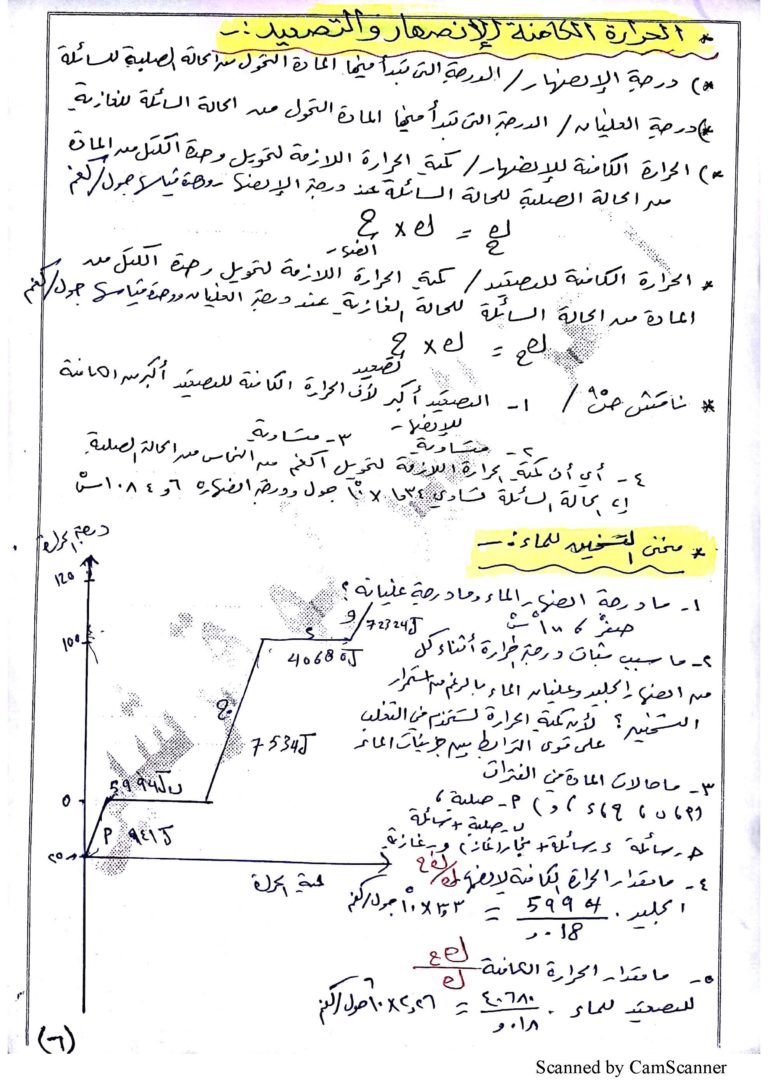 * الحرارة الكامنة للإنصهار والتصعيد :-
*) درجة الإنصهار / الدرجة التي تبدأ منها المادة التحول من الحالة الصلبة للسائلة
*) درجة الغليان / الدرجة التي تبدأ منها المادة التحول من الحالة السائلة للغازية
*) الحرارة الكامنة للإنصهار / كمية الحرارة اللازمة لتحويل وحدة الكتل من المادة
من الحالة الصلبة للحالة السائلة عند درجة الإنصهار ووحدة قياسها جول/كغم
الصهر
* الحرارة الكامنة للتصعيد / كمية الحرارة اللازمة لتحويل وحدة الكتل من
المادة من الحالة السائلة للحالة الغازية عند درجة الغليان ووحدة قياسها جول/كغم
تصعيد
* ناقش ص٩٥ / ١- التصعيد أكبر لأن الحرارة الكامنة للتصعيد أكبر من الكامنة
للإنصهار
٢- متساوية ٣- متساوية
٤- أي أن كمية الحرارة اللازمة لتحويل ١كغم من النحاس من الحالة الصلبة
إلى الحالة السائلة تساوي ١,٣٤ × ١٠ جول ودرجة انصهاره ١٠٨٤,٦ س
* منحنى التسخين للماء :-
١- ما درجة انصهار الماء وما درجة غليانه ؟
صفر ، ١٠٠ س
٢- ما سبب ثبات درجة الحرارة أثناء كل
من انصهار الجليد وغليان الماء بالرغم من استمرار
التسخين ؟ لأن كمية الحرارة تستخدم في التغلب
على قوى الترابط بين جزيئات الماء
٣- ما حالات المادة في الفترات
(أ ، ب ، ج ، د ، و) أ- صلبة ،
ب- صلبة + سائلة
ج- سائلة د- سائلة + بخار (غاز) و- غازية
٤- ما مقدار الحرارة الكامنة لإنصهار
الجليد . 5994 / ٠,018 = ٣,٣٣ × ١٠ جول/كغم
٥- ما مقدار الحرارة الكامنة
للتصعيد للماء . ٤٠٦٨٠ / ٠,٠١٨ = ٢,٢٦ × ١٠ جول/كغم
درجة الحرارة
١٢٠
١٠٠
٠
-٢٠
أ 941J
ب 5994J
ج 7534J
د 40680J
و 72324J
كمية الحرارة
(٦)
Scanned by CamScanner